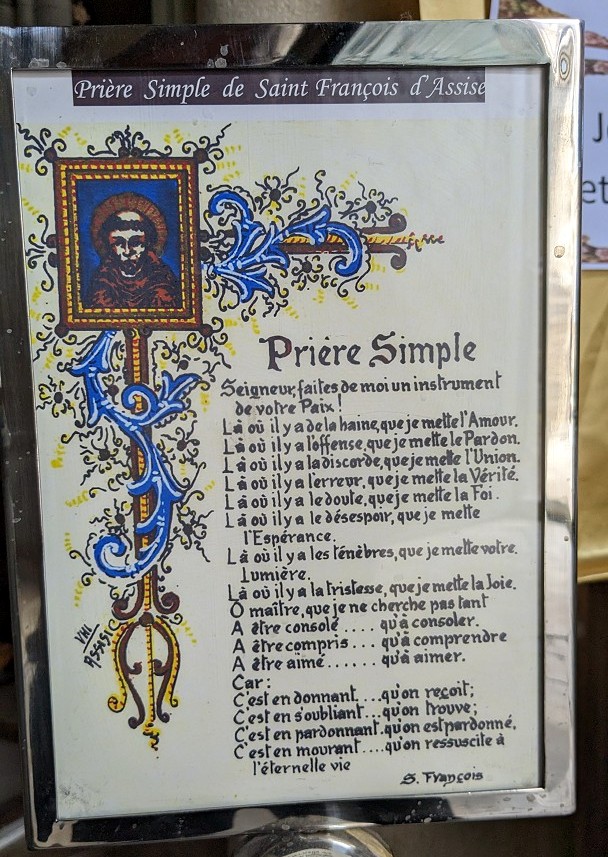 Prière Simple de Saint François d'Assise
J
et
Prière Simple
Seigneur, faites de moi un instrument
de votre Paix !
Là où il y a de la haine, que je mette l'Amour.
Là où il y a l'offense, que je mette le Pardon.
Là où il y a la discorde, que je mette l'Union.
Là où il y a l'erreur, que je mette la Vérité.
Là où il y a le doute, que je mette la Foi.
Là où il y a le désespoir, que je mette
l'Espérance.
Là où il y a les ténèbres, que je mette votre.
Lumière.
Là où il y a la tristesse, que je mette la Joie.
O maître, que je ne cherche pas tant
A être consolé ..... qu'à consoler.
A être compris ... qu'à comprendre
A être aimé ...... qu'à aimer.
Car :
C'est en donnant ....qu'on reçoit;
C'est en s'oubliant ...qu'on trouve;
C'est en pardonnant.qu'on est pardonné,
C'est en mourant ....qu'on ressuscite à
l'éternelle vie
S. François
VIII
ASSISI